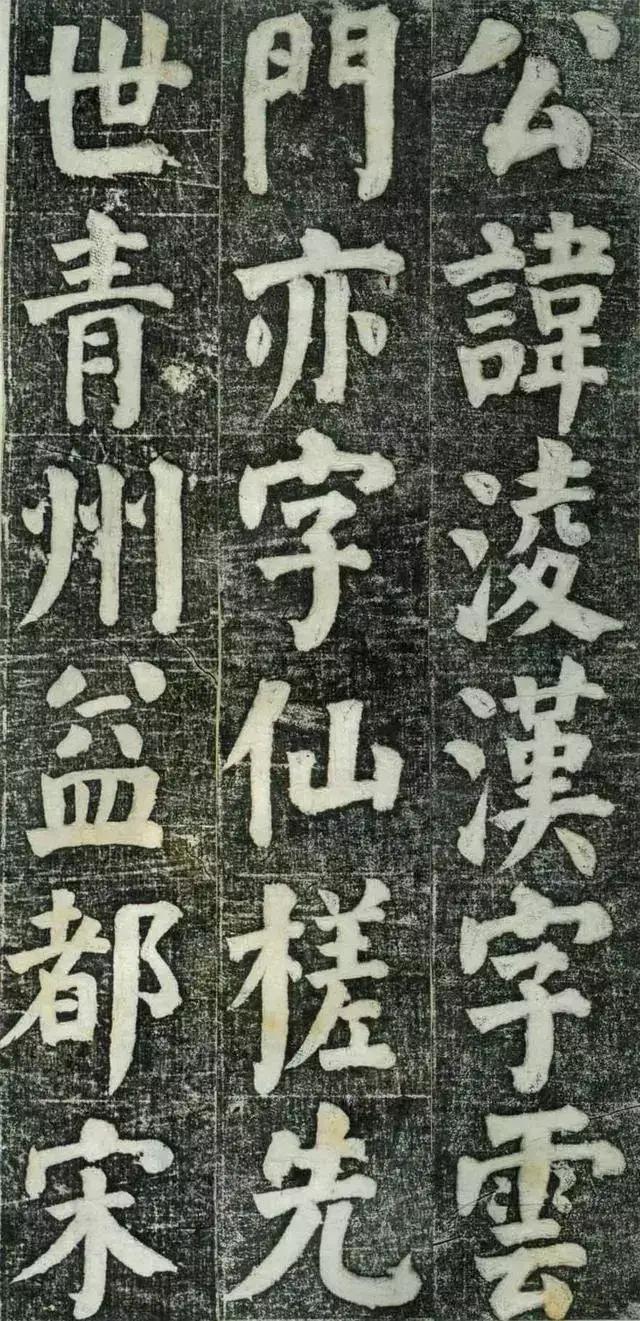 公諱凌漢字雲
門亦字仙槎先
世青州益都宋